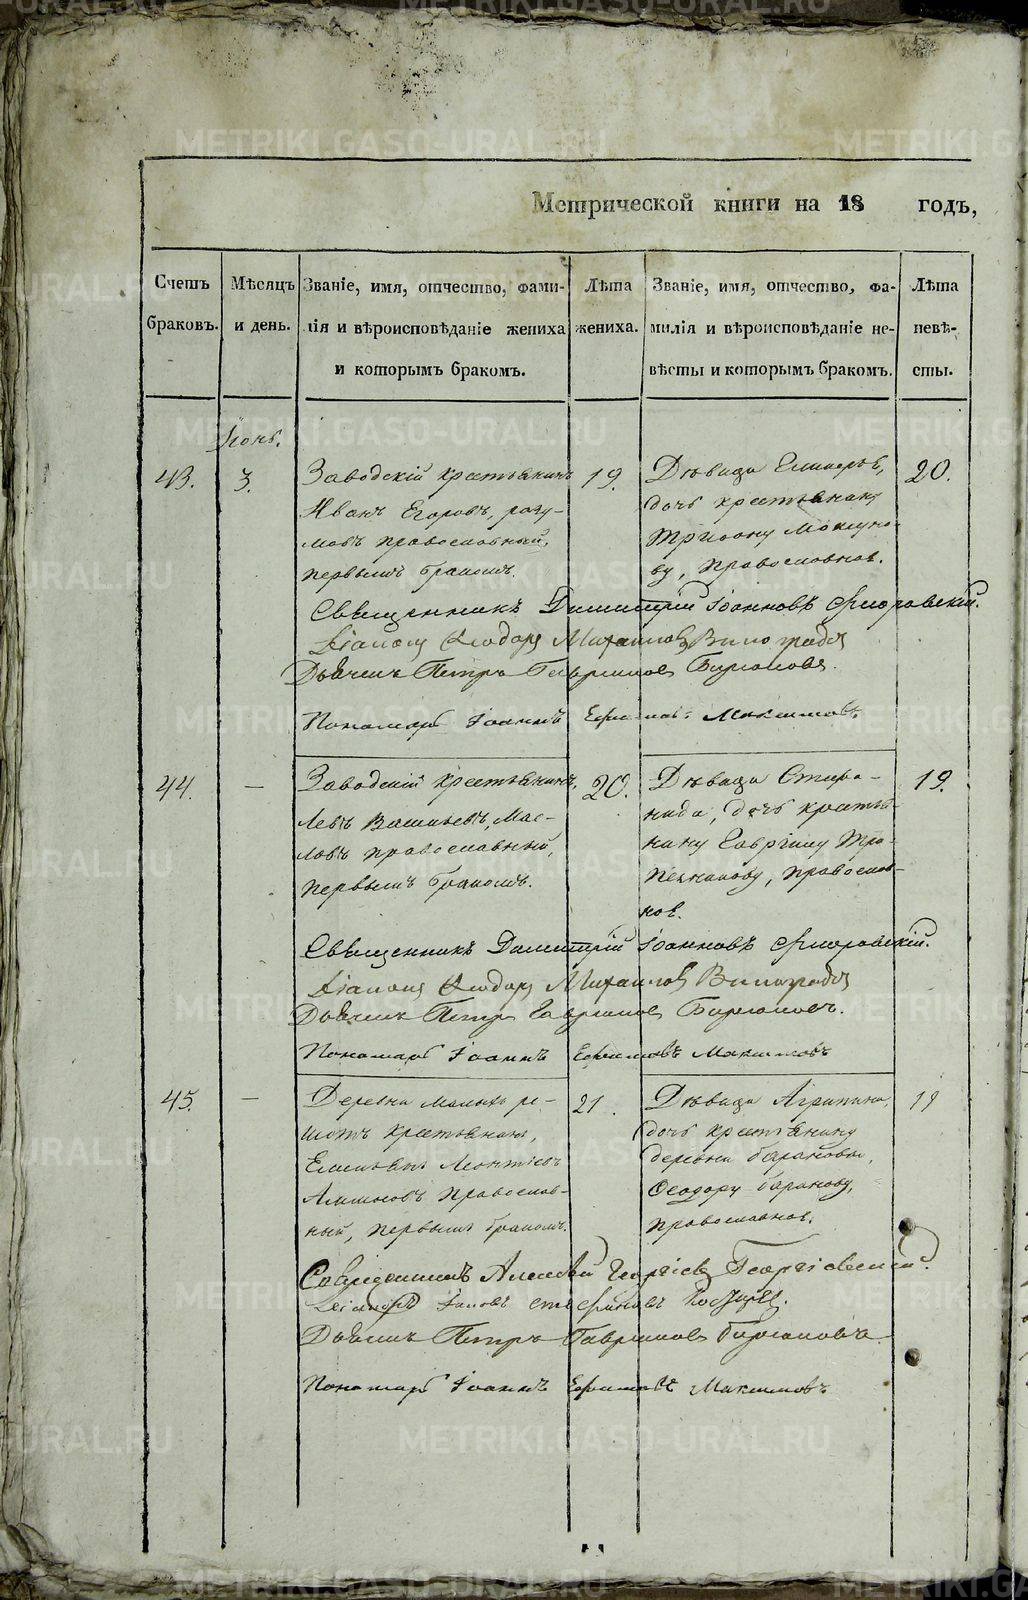 METRIKI.GASO-URAL.RU
Метрической книги на 18 годъ,
Счетъ браковъ.
Мѣсяцъ и день.
Званіе, имя, отчество, фами-
лія и вѣроисповѣданіе жениха
и которымъ бракомъ.
Лѣта жениха.
Званіе, имя, отчество, фа-
милія и вѣроисповѣданіе не-
вѣсты и которымъ бракомъ.
Лѣта невѣ-
сты.
Іюнь.
43.
3.
Заводскій крестьянинъ
Иванъ Егоровъ, разу-
мовъ православный,
первымъ бракомъ.
19.
Дѣвица
дочь крестьянину
Трифону
ву, православная.
20.
Священникъ Димитрій Іоанновъ Флоровскій.
Діаконъ Ѳеодоръ Михаиловъ Виноградовъ
Дьячекъ Петръ Гавриловъ Бирюковъ.
Пономарь Іоаннъ Ефимовъ Максимовъ.
44.
—
Заводскій крестьянинъ,
Левъ Васильевъ, Мас-
ловъ православный,
первымъ бракомъ.
20.
Дѣвица Стефа-
нида, дочь крестья-
нину Гаврілу Тра-
пезникову, православ-
ная.
19.
Священникъ Димитрій Іоанновъ Флоровскій.
Діаконъ Ѳеодоръ Михаиловъ Виноградовъ
Дьячекъ Петръ Гавриловъ Бирюковъ.
Пономарь Іоаннъ Ефимовъ Максимовъ
45.
—
Деревни Малыхъ ре-
шотъ крестьянинъ,
Леонтіевъ
православ-
ный, первымъ бракомъ.
21.
Дѣвица Агрипина,
дочь крестьянину
деревни барановой,
Ѳеодору баранову,
православная.
19
Священникъ Алексѣй Георгіевъ Георгіевскій.
Діаконъ Іаковъ Стефановъ
Дьячекъ Петръ Гавриловъ Бирюковъ
Пономарь Іоаннъ Ефимовъ Максимовъ